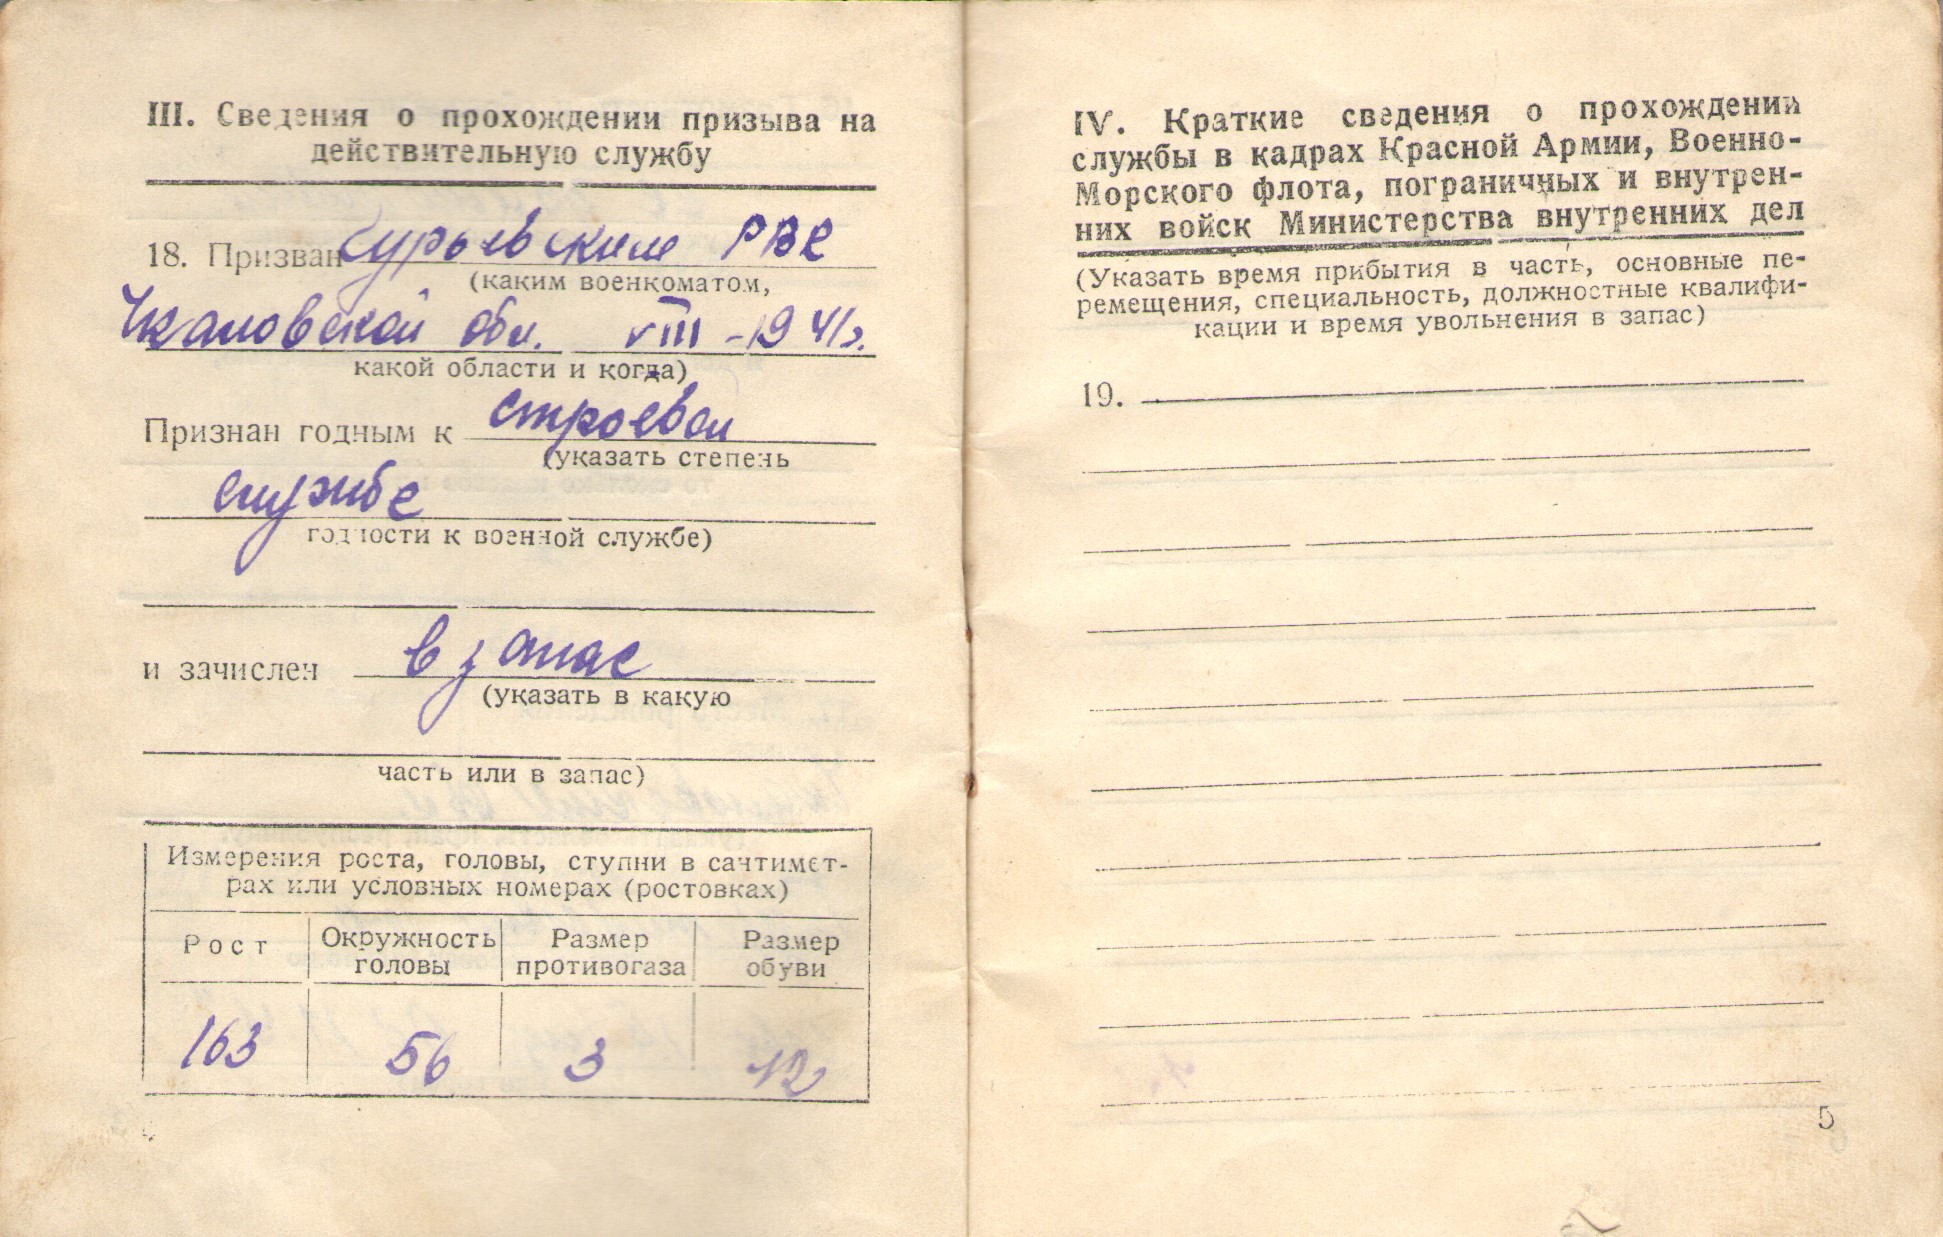 III. Сведения о прохождении призыва на
действительную службу
18. Призван РВК
(каким военкоматом,
Чкаловской обл. VIII - 1941 г.
какой области и когда)
Признан годным к строевой
(указать степень
службе
годности к военной службе)
и зачислен в запас
(указать в какую
часть или в запас)
Измерения роста, головы, ступни в сантимет-
рах или условных номерах (ростовках)
Рост Окружность головы Размер противогаза Размер обуви
163 56 3 12
IV. Краткие сведения о прохождении
службы в кадрах Красной Армии, Военно-
Морского флота, пограничных и внутрен-
них войск Министерства внутренних дел
(Указать время прибытия в часть, основные пе-
ремещения, специальность, должностные квалифи-
кации и время увольнения в запас)
19.
5